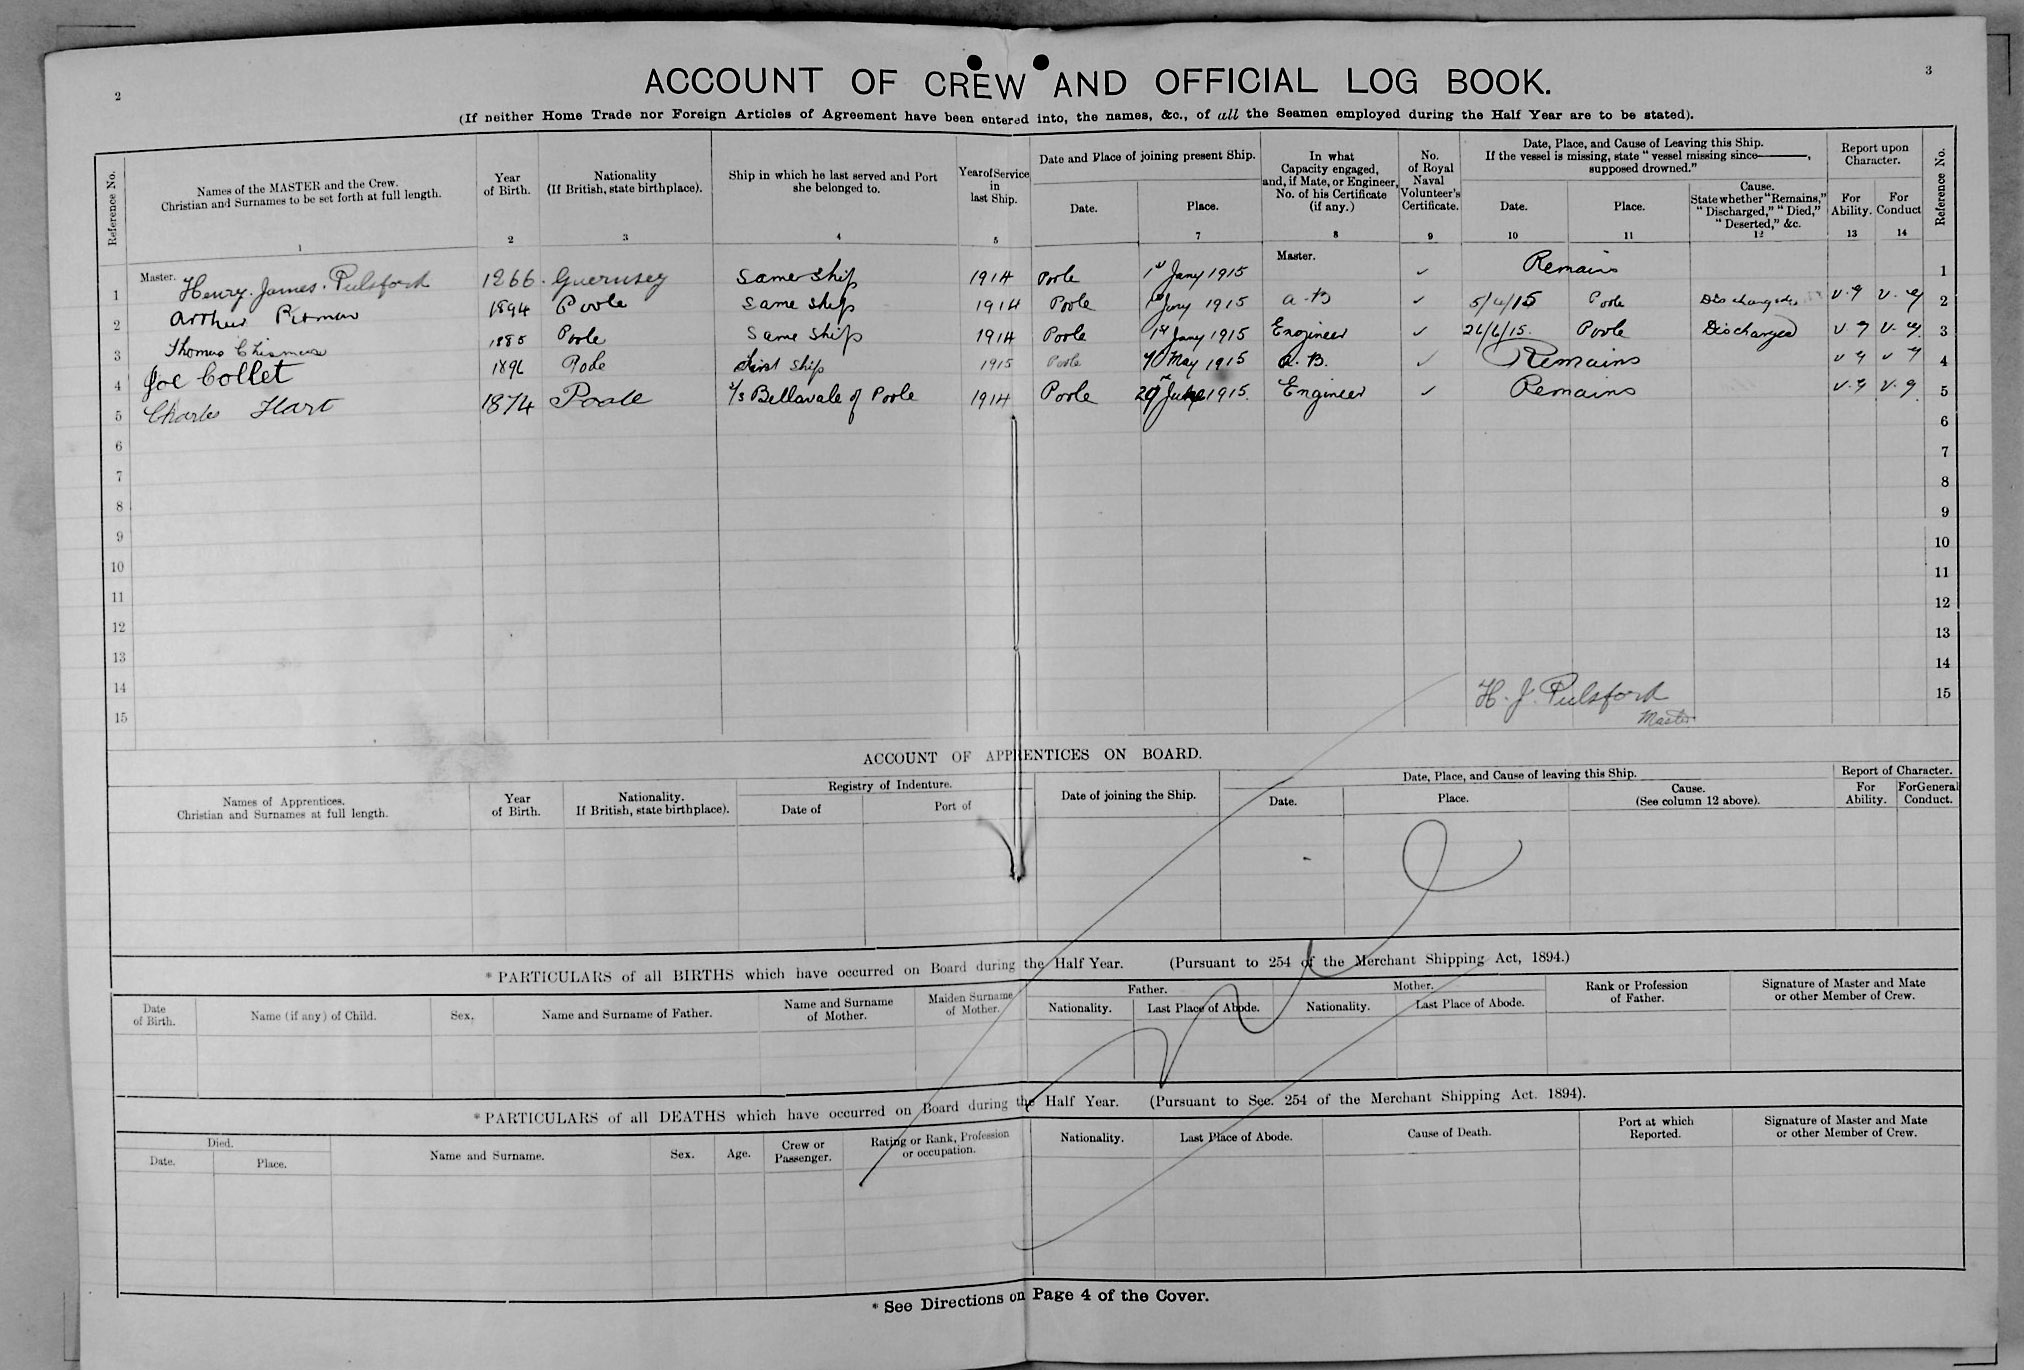 2
3
ACCOUNT OF CREW AND OFFICIAL LOG BOOK.
(If neither Home Trade nor Foreign Articles of Agreement have been entered into, the names, &c., of all the Seamen employed during the Half Year are to be stated).
Reference No.
Names of the MASTER and the Crew.
Christian and Surnames to be set forth at full length.
1
Year
of Birth.
2
Nationality
(If British, state birthplace).
3
Ship in which he last served and Port
she belonged to.
4
Year of Service
in
last Ship.
5
Date and Place of joining present Ship.
Date.
Place.
7
In what
Capacity engaged,
and, if Mate, or Engineer,
No. of his Certificate
(if any.)
8
No.
of Royal
Naval
Volunteer's
Certificate.
9
Date, Place, and Cause of Leaving this Ship.
If the vessel is missing, state "vessel missing since———,
supposed drowned."
Date.
10
Place.
11
Cause.
State whether "Remains,"
"Discharged," "Died,"
"Deserted," &c.
12
Report upon
Character.
For
Ability.
13
For
Conduct
14
Reference No.
1 Master. Henry James Pulsford 1866 Guernsey Same Ship 1914 Poole 1st Jany 1915 Master. ✓ Remains 1
2 Arthur Pitman 1894 Poole Same Ship 1914 Poole 1st Jany 1915 A.B ✓ 5/4/15 Poole Discharged v.g v.g 2
3 Thomas 1885 Poole Same Ship 1914 Poole 1st Jany 1915 Engineer ✓ 26/6/15. Poole Discharged v g v. g. 3
4 Joe Collet 1896 Poole First Ship 1915 Poole May 1915 A.B. ✓ Remains v g v g 4
5 Charles Hart 1874 Poole s/s Bellavale of Poole 1914 Poole June 1915. Engineer ✓ Remains v.g v.g 5
6 6
7 7
8 8
9 9
10 10
11 11
12 12
13 13
14 14
15 15
H. J. Pulsford
Master
ACCOUNT OF APPRENTICES ON BOARD.
Names of Apprentices.
Christian and Surnames at full length.
Year
of Birth.
Nationality.
If British, state birthplace).
Registry of Indenture.
Date of
Port of
Date of joining the Ship.
Date, Place, and Cause of leaving this Ship.
Date.
Place.
Cause.
(See column 12 above).
Report of Character.
For
Ability.
For General
Conduct.
None
*PARTICULARS of all BIRTHS which have occurred on Board during the Half Year. (Pursuant to 254 of the Merchant Shipping Act, 1894.)
Date
of Birth.
Name (if any) of Child.
Sex.
Name and Surname of Father.
Name and Surname
of Mother.
Maiden Surname
of Mother.
Father.
Nationality.
Last Place of Abode.
Mother.
Nationality.
Last Place of Abode.
Rank or Profession
of Father.
Signature of Master and Mate
or other Member of Crew.
*PARTICULARS of all DEATHS which have occurred on Board during the Half Year. (Pursuant to Sec. 254 of the Merchant Shipping Act. 1894).
Died.
Date.
Place.
Name and Surname.
Sex.
Age.
Crew or
Passenger.
Rating or Rank, Profession
or occupation.
Nationality.
Last Place of Abode.
Cause of Death.
Port at which
Reported.
Signature of Master and Mate
or other Member of Crew.
* See Directions on Page 4 of the Cover.